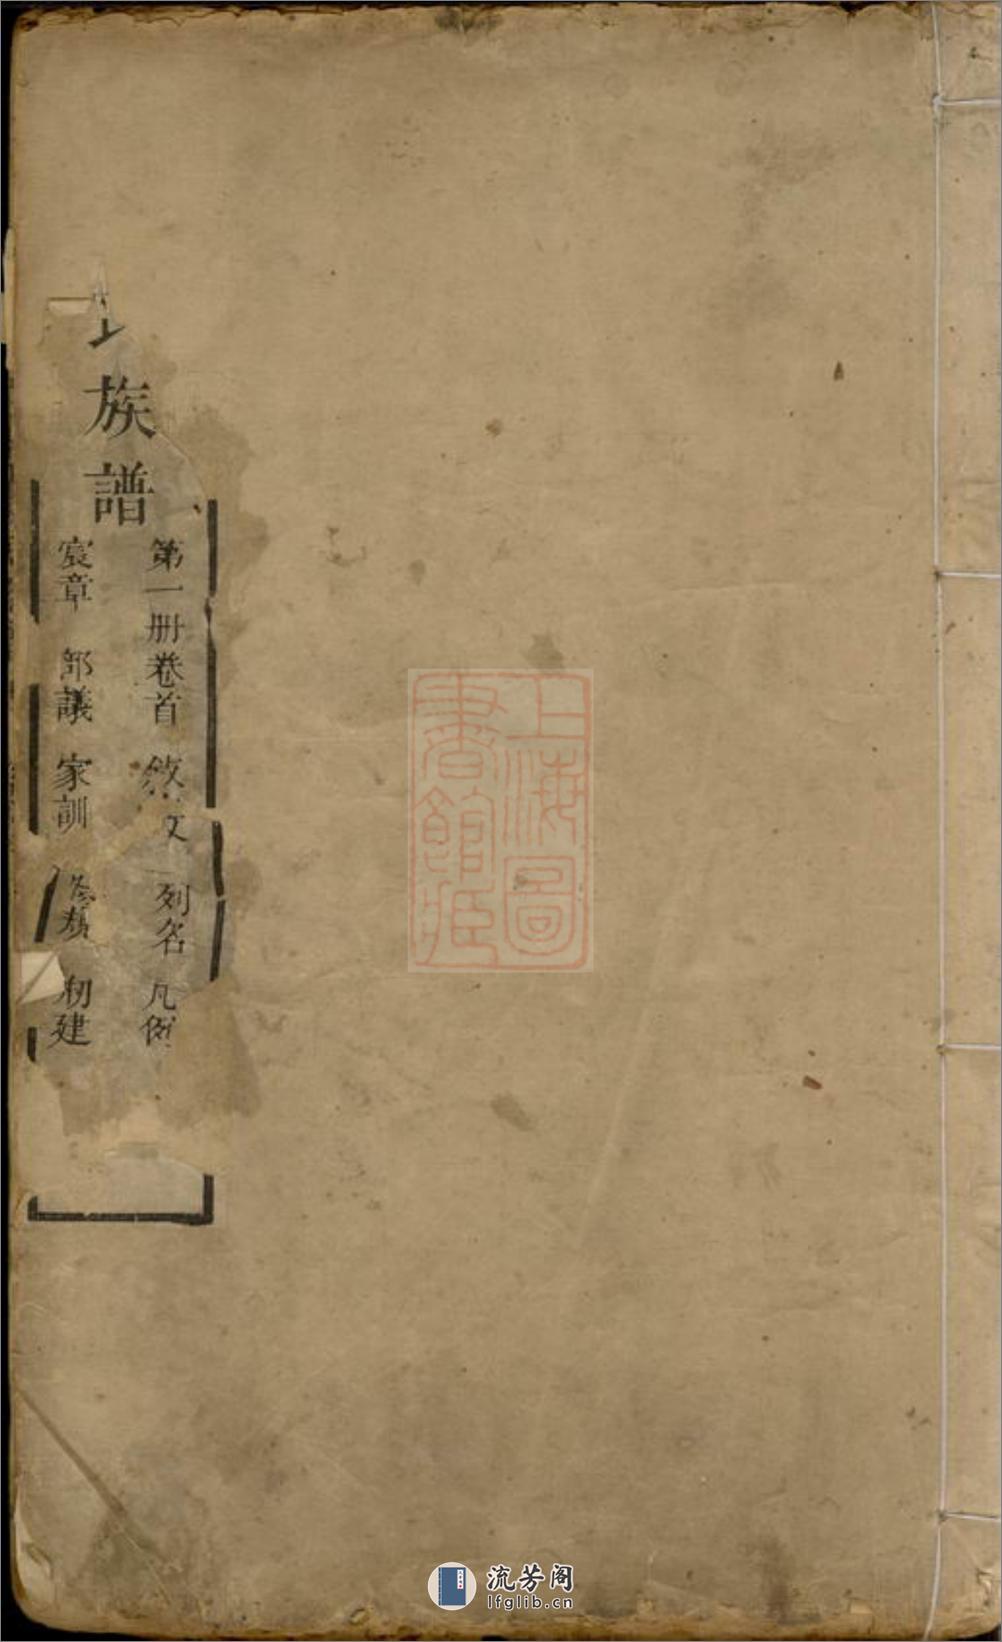 族譜
第一册卷首 敘文 列名 凡例
宸章 部議 家訓 建
上海圖
書館藏
流芳阁
lfglib.cn